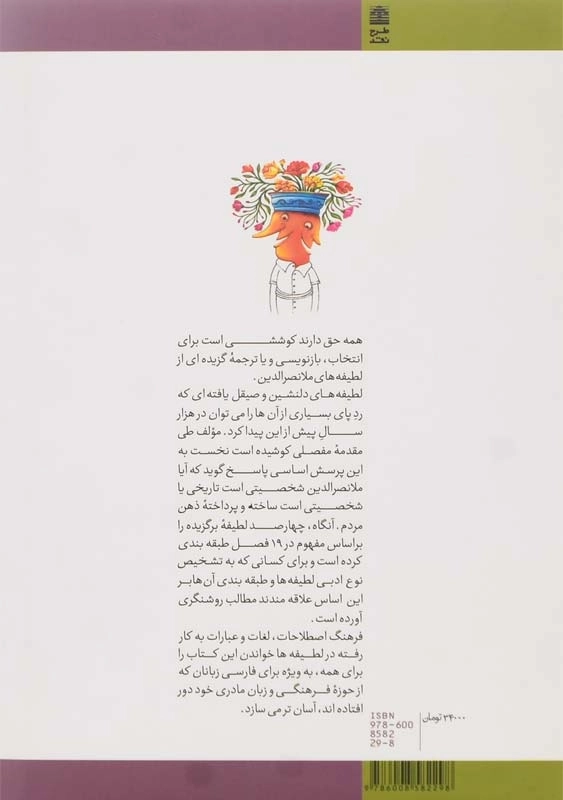 طرح
نقد
همه حق دارند کوششی است برای
انتخاب، بازنویسی و یا ترجمهٔ گزیده ای از
لطیفه های ملانصرالدین.
لطیفه های دلنشین و صیقل یافته ای که
ردِ پای بسیاری از آن ها را می توان در هزار
سالِ پیش از این پیدا کرد. مؤلف طی
مقدمهٔ مفصلی کوشیده است نخست به
این پرسش اساسی پاسخ گوید که آیا
ملانصرالدین شخصیتی است تاریخی یا
شخصیتی است ساخته و پرداختهٔ ذهن
مردم. آنگاه، چهارصد لطیفهٔ برگزیده را
براساس مفهوم در ۱۹ فصل طبقه بندی
کرده است و برای کسانی که به تشخیص
نوع ادبی لطیفه ها و طبقه بندی آن ها بر
این اساس علاقه مندند مطالب روشنگری
آورده است.
فرهنگ اصطلاحات، لغات و عبارات به کار
رفته در لطیفه ها خواندن این کتاب را
برای همه، به ویژه برای فارسی زبانان که
از حوزهٔ فرهنگی و زبان مادری خود دور
افتاده اند، آسان تر می سازد.
۳۴۰۰۰ تومان
ISBN
978-600
8582
29-8
9786008582298